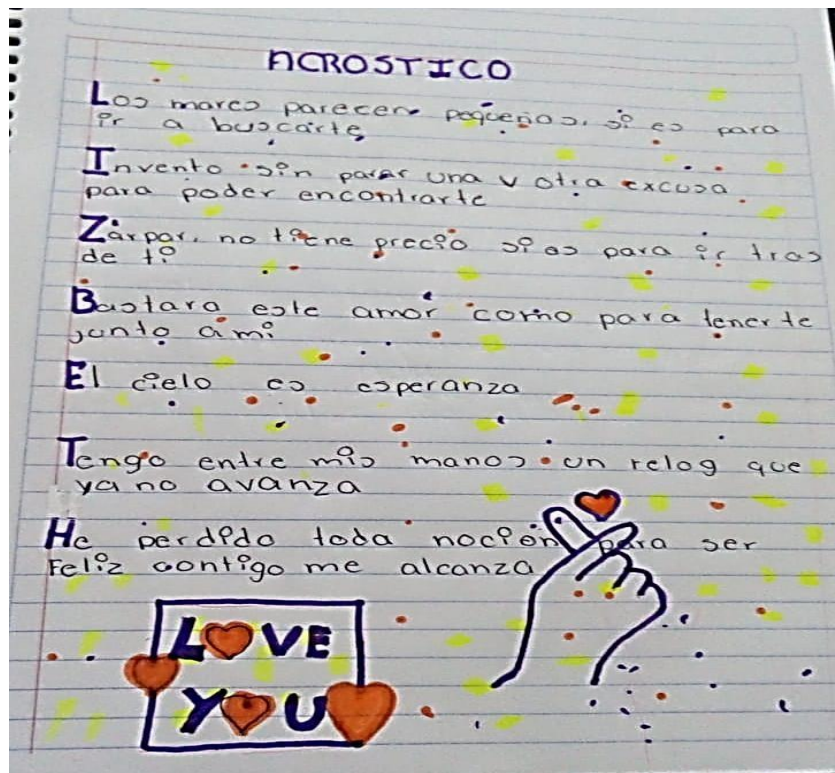 ACROSTICO
Los mares parecen pequeños, si es para
ir a buscarte,
Invento sin parar una y otra excusa
para poder encontrarte
Zarpar, no tiene precio si es para ir tras
de ti
Bastara este amor como para tenerte
junto a mi
El cielo es esperanza
Tengo entre mis manos un relog que
ya no avanza
He perdido toda noción para ser
Feliz contigo me alcanza
LOVE
YOU